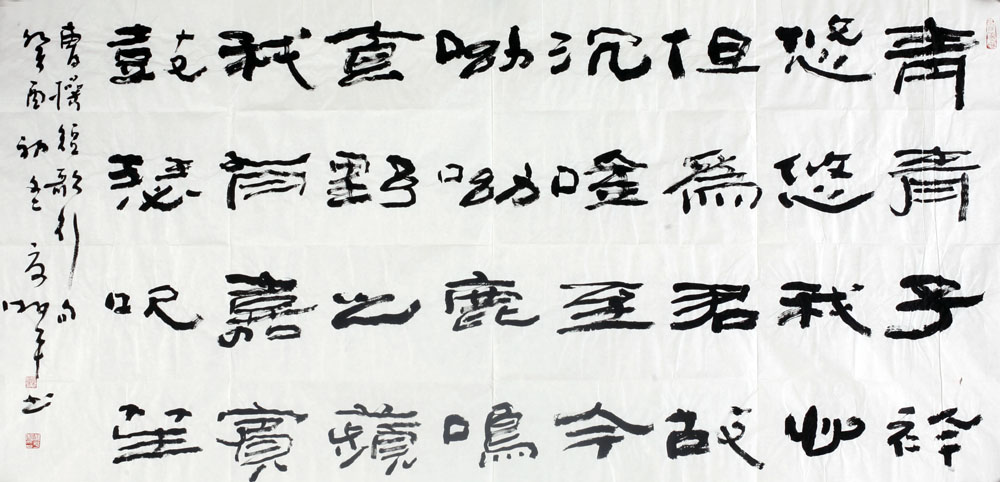 青青子衿
悠悠我心
但為君故
沉唫至今
呦呦鹿鳴
食野之蘋
我有嘉賓
鼓瑟吹笙
曹操短歌行句
癸酉初冬 书